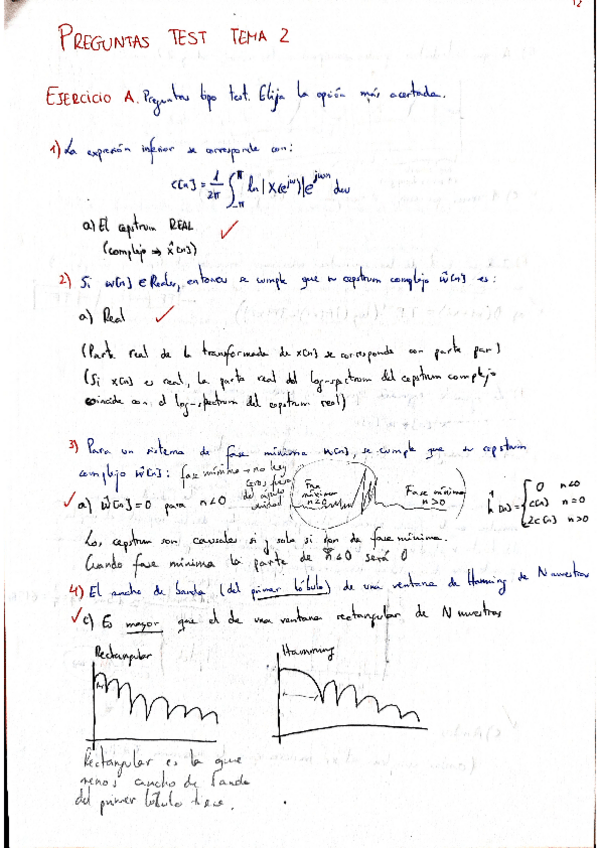 12
PREGUNTAS TEST TEMA 2
EJERCICIO A. Preguntas tipo test. Elija la opción más acertada.
1) La expresión inferior se corresponde con:
c[n] = 1/2π ∫_-π^π ln|X(e^jω)|e^jωn dω
a) El cepstrum REAL
(complejo → x̂[n])
2) Si w[n] ∈ Reales, entonces se cumple que su cepstrum complejo ŵ[n] es:
a) Real
(Parte real de la transformada de x[n] se corresponde con parte par)
(Si x[n] es real, la parte real del log-spectrum del cepstrum complejo
coincide con el log-spectrum del cepstrum real)
3) Para un sistema de fase mínima w[n], se cumple que su cepstrum
complejo ŵ[n]: fase mínima → no hay
ceros fuera
del círculo
unidad
Fase
máxima
n<0
Fase mínima
n>0
a) ŵ[n]=0 para n<0
ĥ[n] = { 0 n<0
c[n] n=0
2c[n] n>0
Los cepstrum son causales si y solo si son de fase mínima.
Cuando fase mínima la parte de n<0 será 0
4) El ancho de banda (del primer lóbulo) de una ventana de Hamming de N muestras
c) Es mayor que el de una ventana rectangular de N muestras
Rectangular
Hamming
Rectangular es la que
menos ancho de banda
del primer lóbulo tiene.